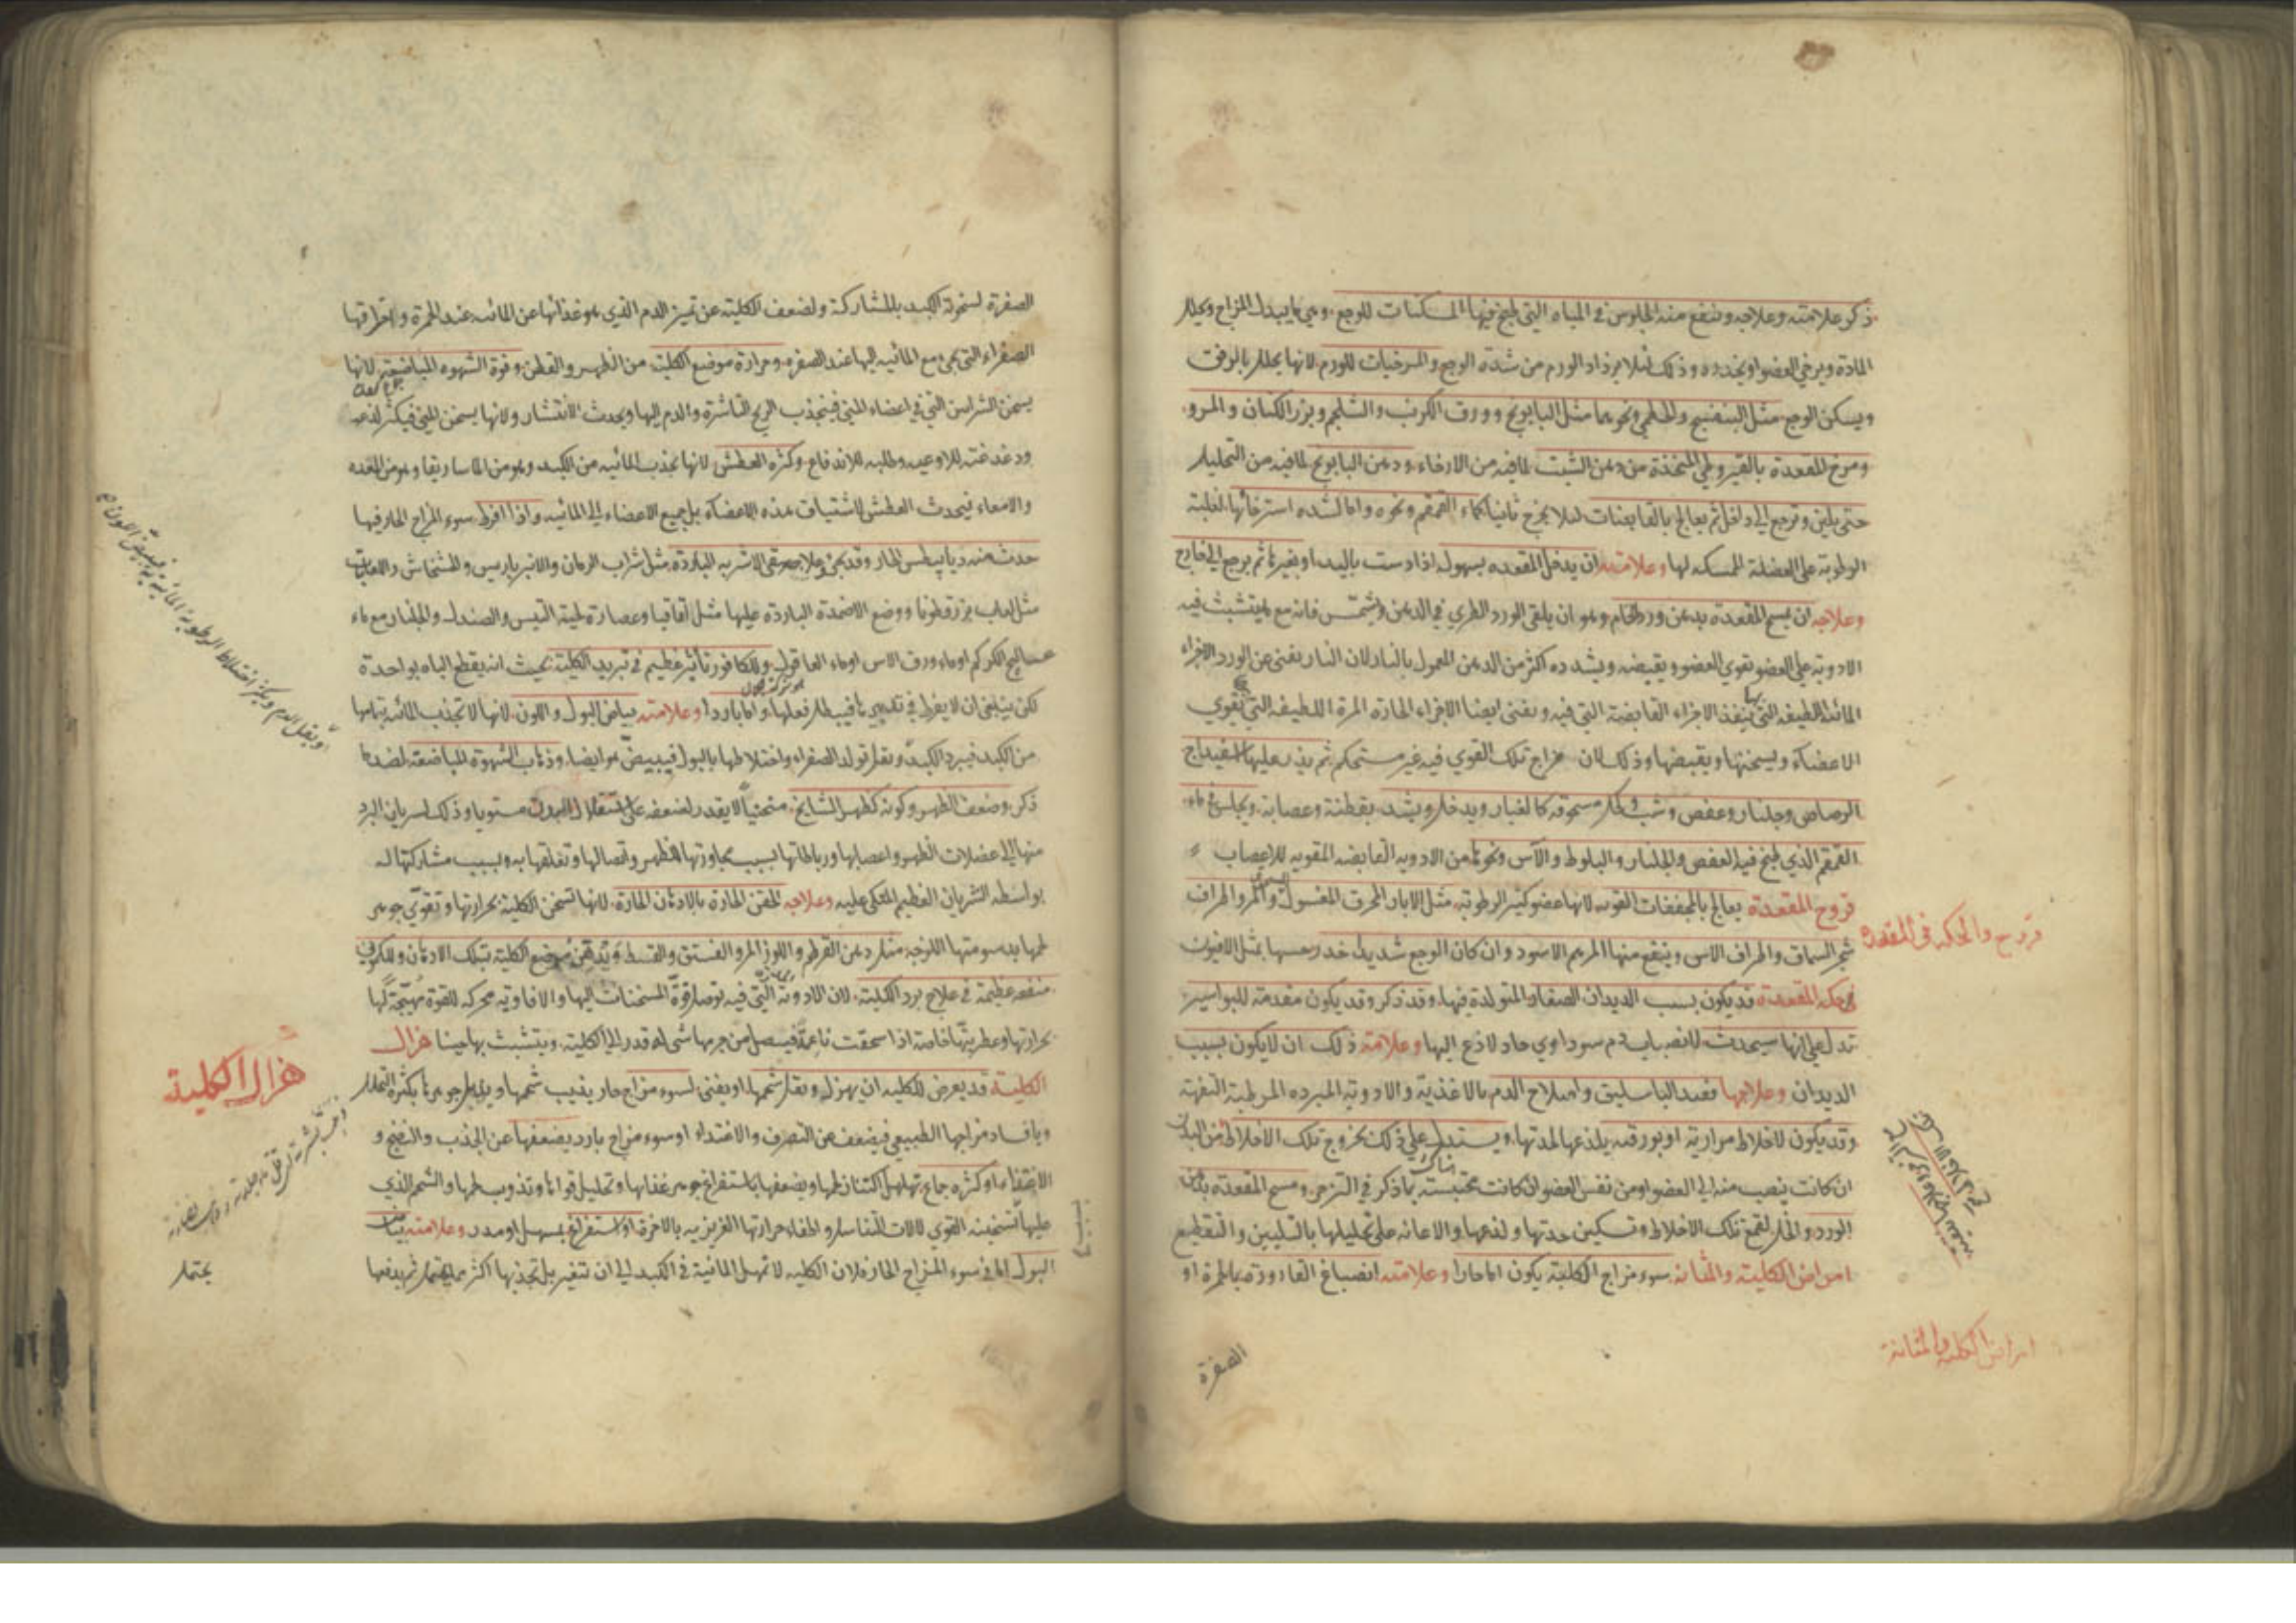 ذكر علامته وعلاجه وينفع منه الجلوس في المياه التي طبخ فيها المسكنات للوجع وهي ما يبدل المزاج ويحلل
المادة ويرخي العضو او يخدره وذلك لئلا يزداد الورم من شدة الوجع والمرخيات للورم لانها يحلل بالرفق
ويسكن الوجع مثل البنفسج والخطمي ونحوهما مثل البابونج وورق الكرنب والشلجم وبزر الكتان والمرو
ومرخ المقعدة بالقيروطي المتخذة من دهن الشبت لما فيه من الارخاء ودهن البابونج لما فيه من التحليل
حتى يلين وترجع الى داخل ثم يعالج بالقابضات لئلا يخرج ثانيا كماء القمقم ونحوه واما لشده استرخائها لغلبة
الرطوبة على العضلة الممسكه لها وعلامته ان يدخل المقعده بسهوله اذا دست باليد او بغيرها ثم يرجع الى خارج
وعلاجه ان يمسح المقعدة بدهن ورد الخام وهو ان يلقى الورد الطري في الدهن ويشمس فانه مع ما يتشبث فيه
الادوية على العضو يقوي العضو ويقبضه ويشدده اكثر من الدهن المعمول بالنار لان النار يفنى عن الورد الاجزاء
المائية اللطيفه التي بها ينفذ الاجزاء القابضة التي فيه ويفنى ايضا الاجزاء الحادة المرة اللطيفه التي تقوي
الاعضاء ويسخنها ويقبضها وذلك لان مزاج تلك القوي فيه غير مستحكم ثم يذر عليها اسفيداج
الرصاص وجلنار وعفص وشب وكحل مسحوقه كالغبار ويدخل ويشد بقطنة وعصابة ويجلس في ماء
القمقم الذي طبخ فيه العفص والجلنار والبلوط والآس ونحوها من الادويه القابضه المقويه للاعصاب
قروح المقعدة يعالج بالمجففات القويه لانها عضو كثير الرطوبة مثل الابار المحرق المغسول والمر واطراف
شجر السماق واطراف الاس وينفع منها المرهم الاسود وان كان الوجع شديدا خدر حسها بمثل الافيون
في حكة المقعدة قد يكون بسبب الديدان الصغار المتولدة فيها وقد ذكر وقد يكون مقدمة للبواسير
تدل على انها سيحدث لانصباب دم سوداوي حاد لاذع اليها وعلامة ذلك ان لا يكون بسبب
الديدان وعلاجها فصد الباسليق واصلاح الدم بالاغذية والادوية المبرده المرطبة التفهة
وقد يكون لاخلاط مرارية او بورقيه يلذعها لحدتها ويستدل على ذلك بخروج تلك الاخلاط من البدن
ان كانت ينصب منه الى العضو او من نفس العضو ان كانت محتبسة بما ذكر في الزحير ومسح المقعدة بدهن
الورد والخل لقمع تلك الاخلاط وتسكين حدتها ولذعها والاعانه على تحليلها بالتليين والتقطيع
امراض الكلية والمثانه سوء مزاج الكلية يكون اما حارا وعلامته انصباغ القارورة بالحمرة او
قروح والحكه في المقعده
امراض الكلية والمثانة
الصفرة
الصفرة لسخونة الكبد بالمشاركة ولضعف الكلية عن تميز الدم الذي هو غذائها عن المائيه عند الحمرة واحراقها
الصفراء التي يجئ مع المائيه اليها عند الصفره وحرارة موضع الكلية من الظهر والقطن وقوة الشهوه المباضعة لانها
يسخن الشرايين التي في اعضاء المني فينجذب الريح الناشرة والدم اليها ويحدث الانتشار ولانها يسخن المني فيكثر لذعه
ودغدغته للاوعيه وطلبه للاندفاع وكثره العطش لانها يجذب المائيه من الكبد وهو من الماساريقا وهو من المعده
والامعاء فيحدث العطش لاشتياق هذه الاعضاء بل جميع الاعضاء الى المائيه واذا افرط سوء المزاج الحار فيها
حدث منه ديابيطس الحار وقد يجئ وعلاجه سقي الاشربه الباردة مثل شراب الرمان والانبرباريس والخشخاش واللعابات
مثل لعاب بزر قطونا ووضع الاضمدة الباردة عليها مثل اقاقيا وعصارة لحية التيس والصندل والجلنار مع ماء
عساليج الكرم او ماء ورق الاس او ماء العاقول وللكافور تأثير عظيم في تبريد الكلية بحيث انه يقطع الباه بواحدة
لكن ينبغي ان لا يفرط في تبريدها فيبطل فعلها واما باردا وعلامته بياض البول واللون لانها لا تجذب المائيه بتمامها
من الكبد فيبرد الكبد ويقل تولد الصفراء واختلاطها بالبول فيبيض هو ايضا وذهاب الشهوة المباضعة لضد ما
ذكر وضعف الظهر وكونه كظهر المشايخ منحنيا لا يقدر لضعفه على استقلال البدن مستويا وذلك لسريان البرد
منها الى عضلات الظهر واعصابها ورباطاتها بسبب مجاورتها للظهر واتصالها وتعلقها به وبسبب مشاركتها له
بواسطه الشريان العظيم المتكي عليه وعلاجه الحقن الحارة بالادهان الحارة لانها تسخن الكلية بحرارتها وتقوي جوهر
لحمها بدسومتها اللزجه مثل دهن القرطم واللوز المر والفستق والقسط وتدهين موضع الكلية بتلك الادهان وللكموني
منفعه عظيمة في علاج برد الكلية لان الادوية التي فيه توصل قوة المسخنات اليها والافاويه محركه للقوة مهيجة لها
بحرارتها وعطريتها خاصة اذا سحقت ناعمة فيصل من جرمها شئ له قدر الى الكلية ويتشبث بها حينا هزال
الكلية قد يعرض للكليه ان يهزل ويقل شحمها او يفنى لسوء مزاج حار يذيب شحمها ويحلل جوهرها بكثرة التحلل
وبافساد مزاجها الطبيعي فيضعف عن التصرف والاغتداء او سوء مزاج بارد يضعفها عن الجذب والنضج و
الاغتذاء او كثره جماع تهلهل اكتناز لحمها ويضعفها باستفراغ جوهر غذائها وتحليل قواها وتذوب لحمها والشحم الذي
عليها تسخينه القوي لالات التناسل واطفاء حرارتها الغريزيه بالاخرة او لاستفراغ بمسهل او مدر وعلامته بياض
البول اما في سوء المزاج الحار فلان الكليه لا تمهل المائية في الكبد الى ان تتغير بل تجذبها اكثر مما يحتمل ثم يدفعها
هزال الكلية
يحتمل